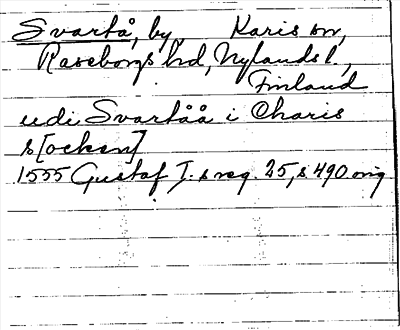 Svartå, by, Karis sn,
Raseborgs hd, Nylands l.,
Finland
udi Svartåå i Charis
s[ocken]
1555 Gustaf I. s reg. 25, s 490 orig